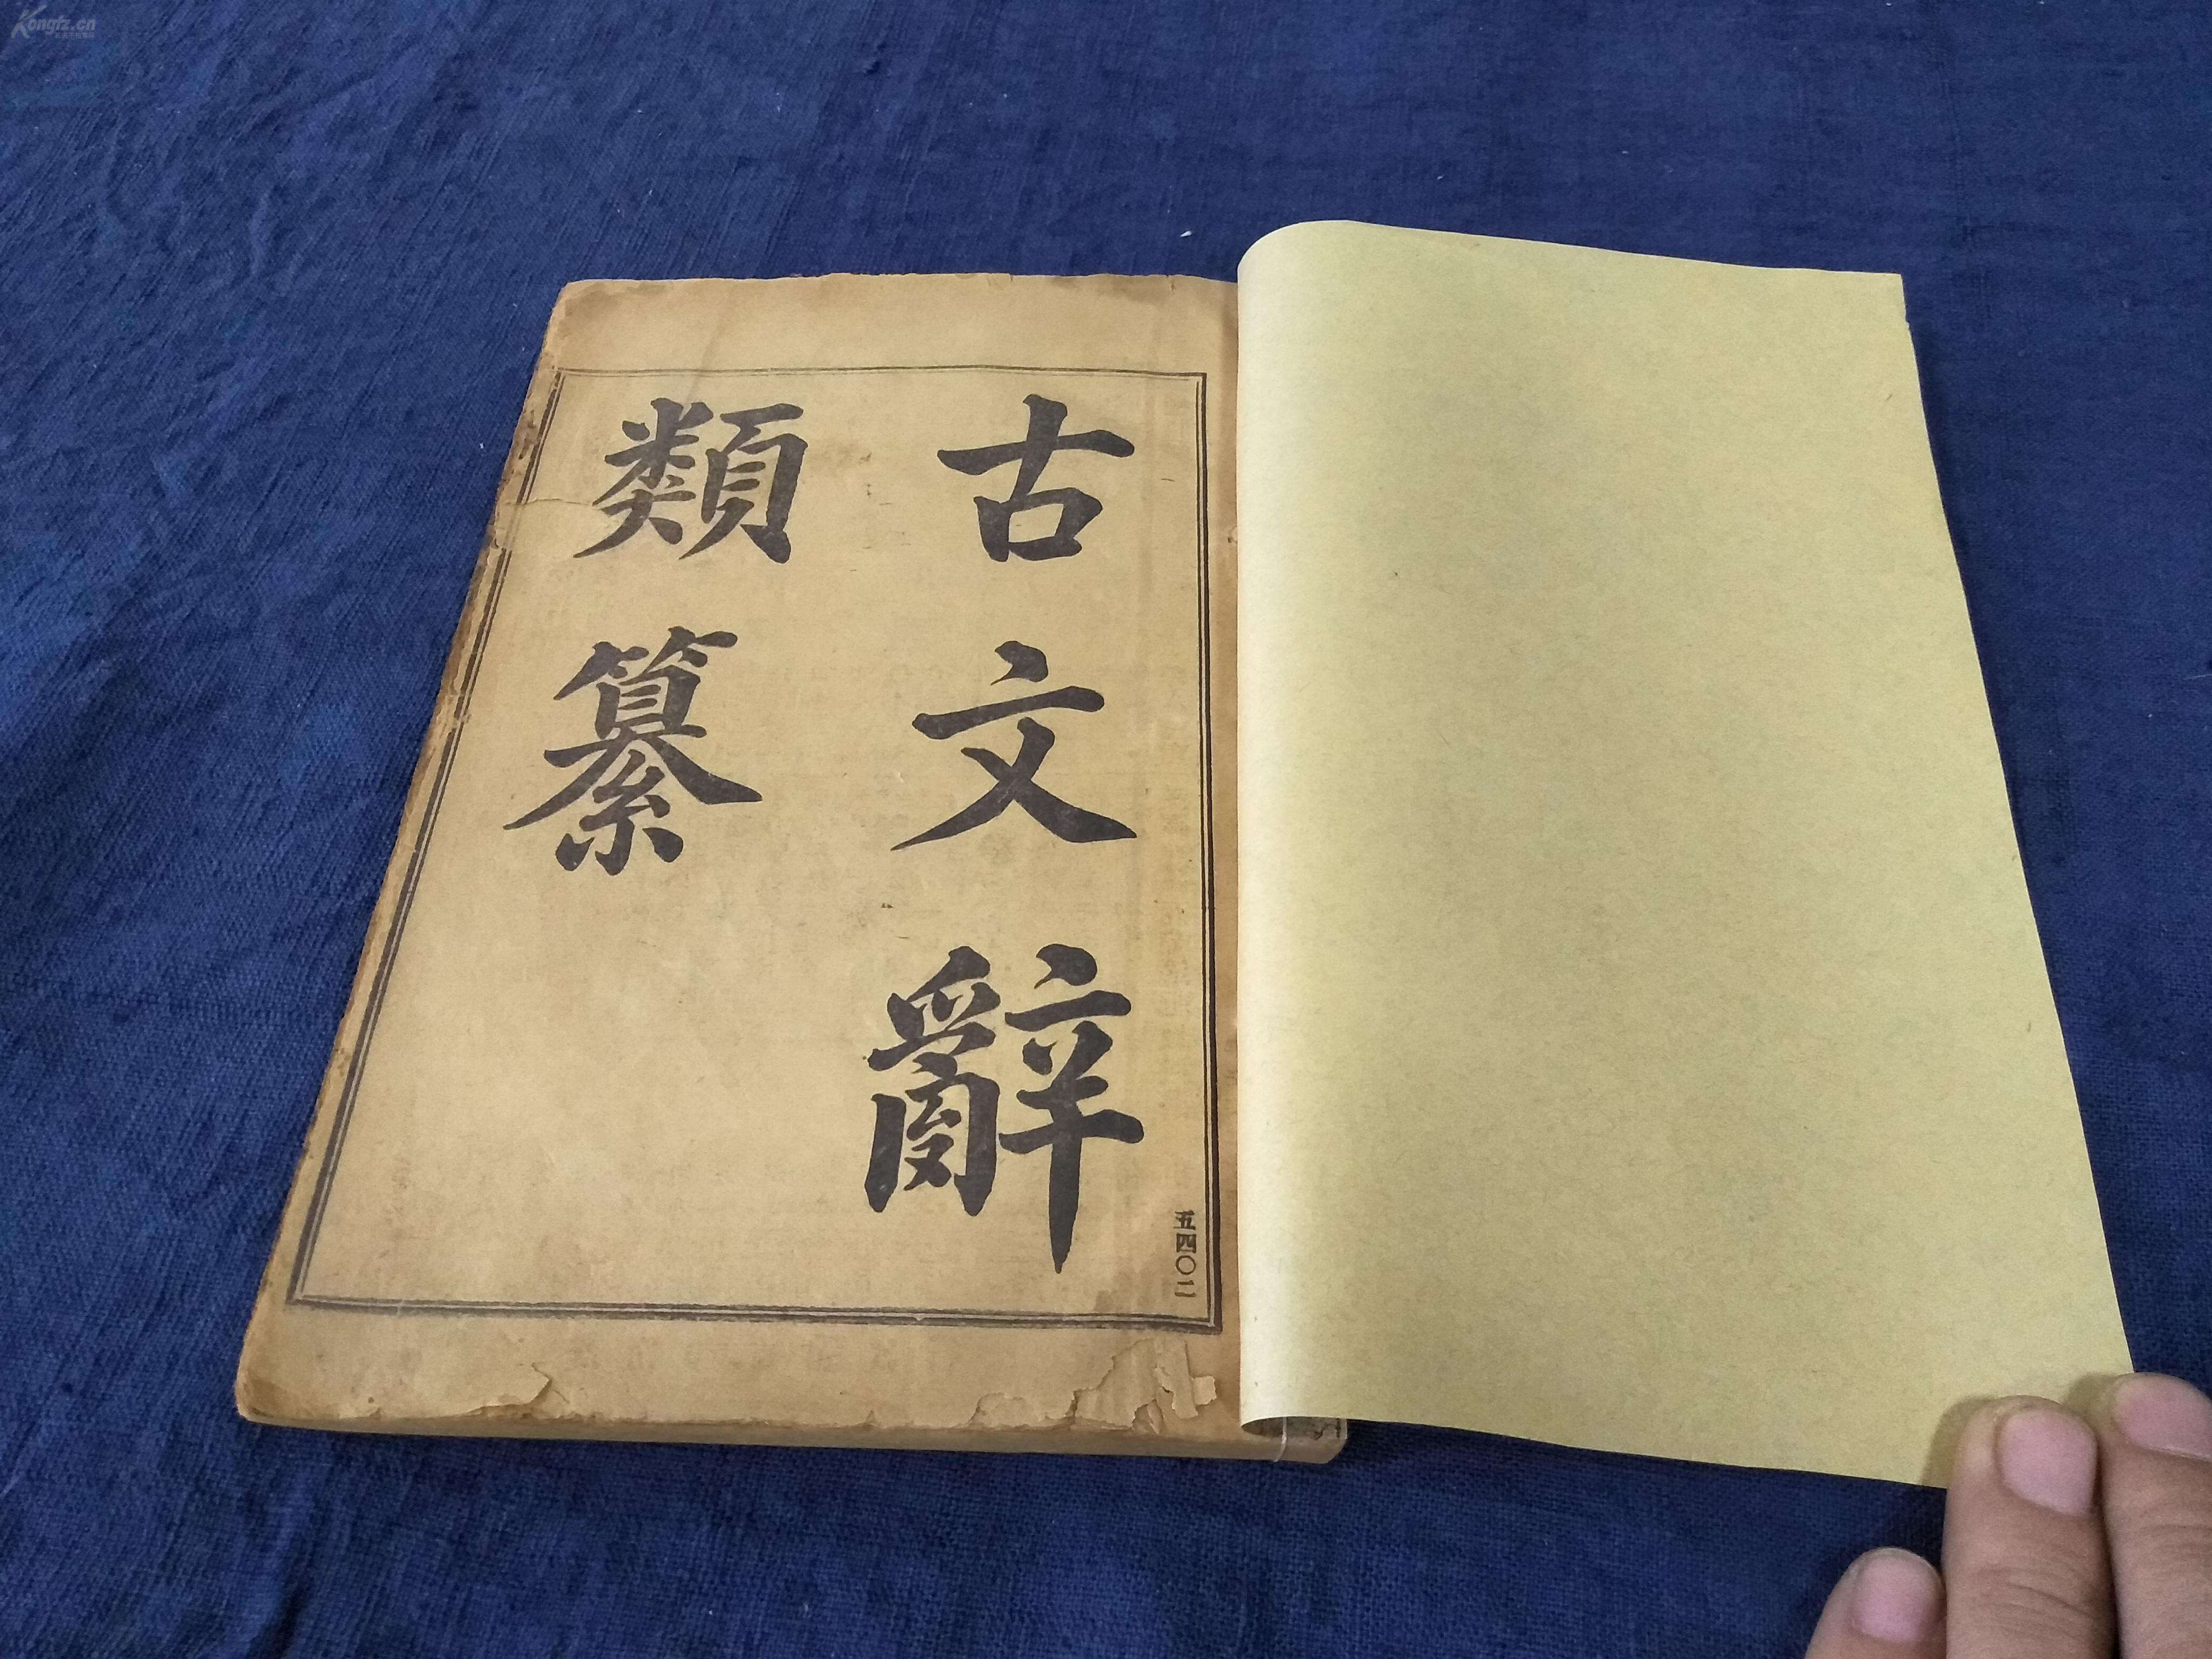 Kongfz.cn
古文辭
類纂
五四〇二